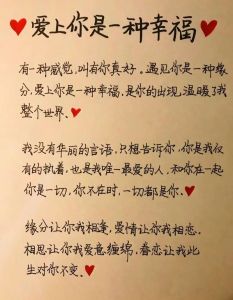 爱上你是一种幸福
有一种感觉,叫有你真好。遇见你是一种缘
分,爱上你是一种幸福,是你的出现,温暖了我
整个世界。
我没有华丽的言语,只想告诉你,你是我仅
有的执着,也是我唯一最爱的人,和你在一起
你是一切,你不在时,一切都是你。
缘分让你我相逢,爱情让你我相恋。
相思让你我爱意缠绵,眷恋让我此
生对你不变。